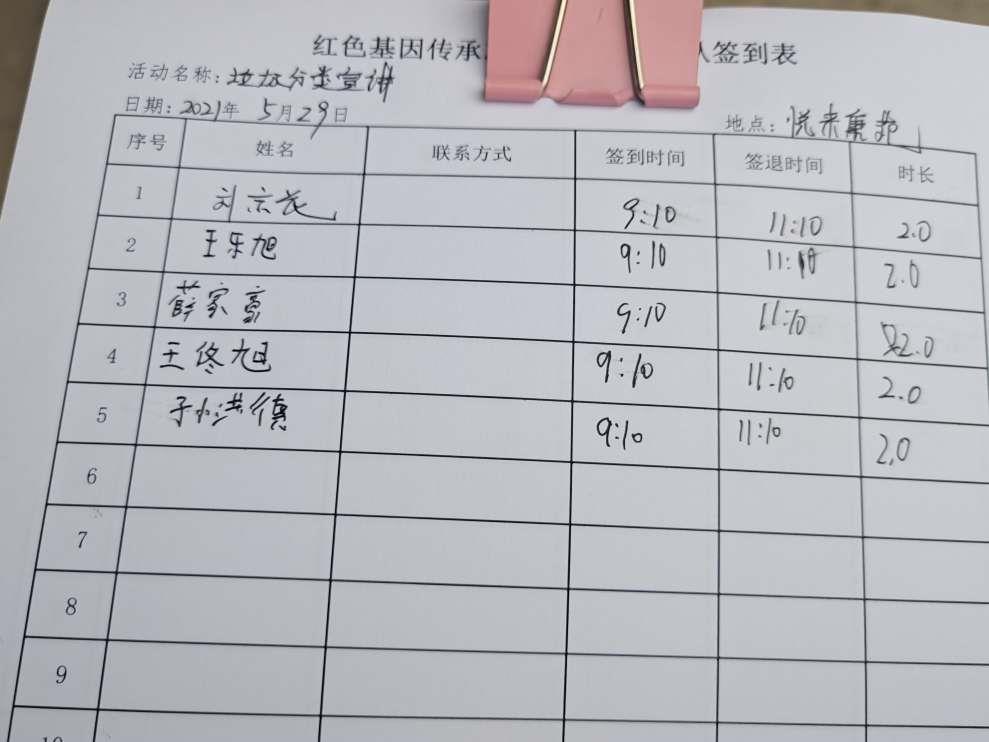 红色基因传承 签到表
活动名称: 垃圾分类宣讲
日期: 2021年 5月29日 地点: 悦来康郡
序号 姓名 联系方式 签到时间 签退时间 时长
1 刘 9:10 11:10 2.0
2 王乐旭 9:10 11:10 2.0
3 薛家豪 9:10 11:10 2.0
4 王佟旭 9:10 11:10 2.0
5 孙洪德 9:10 11:10 2.0
6
7
8
9
10